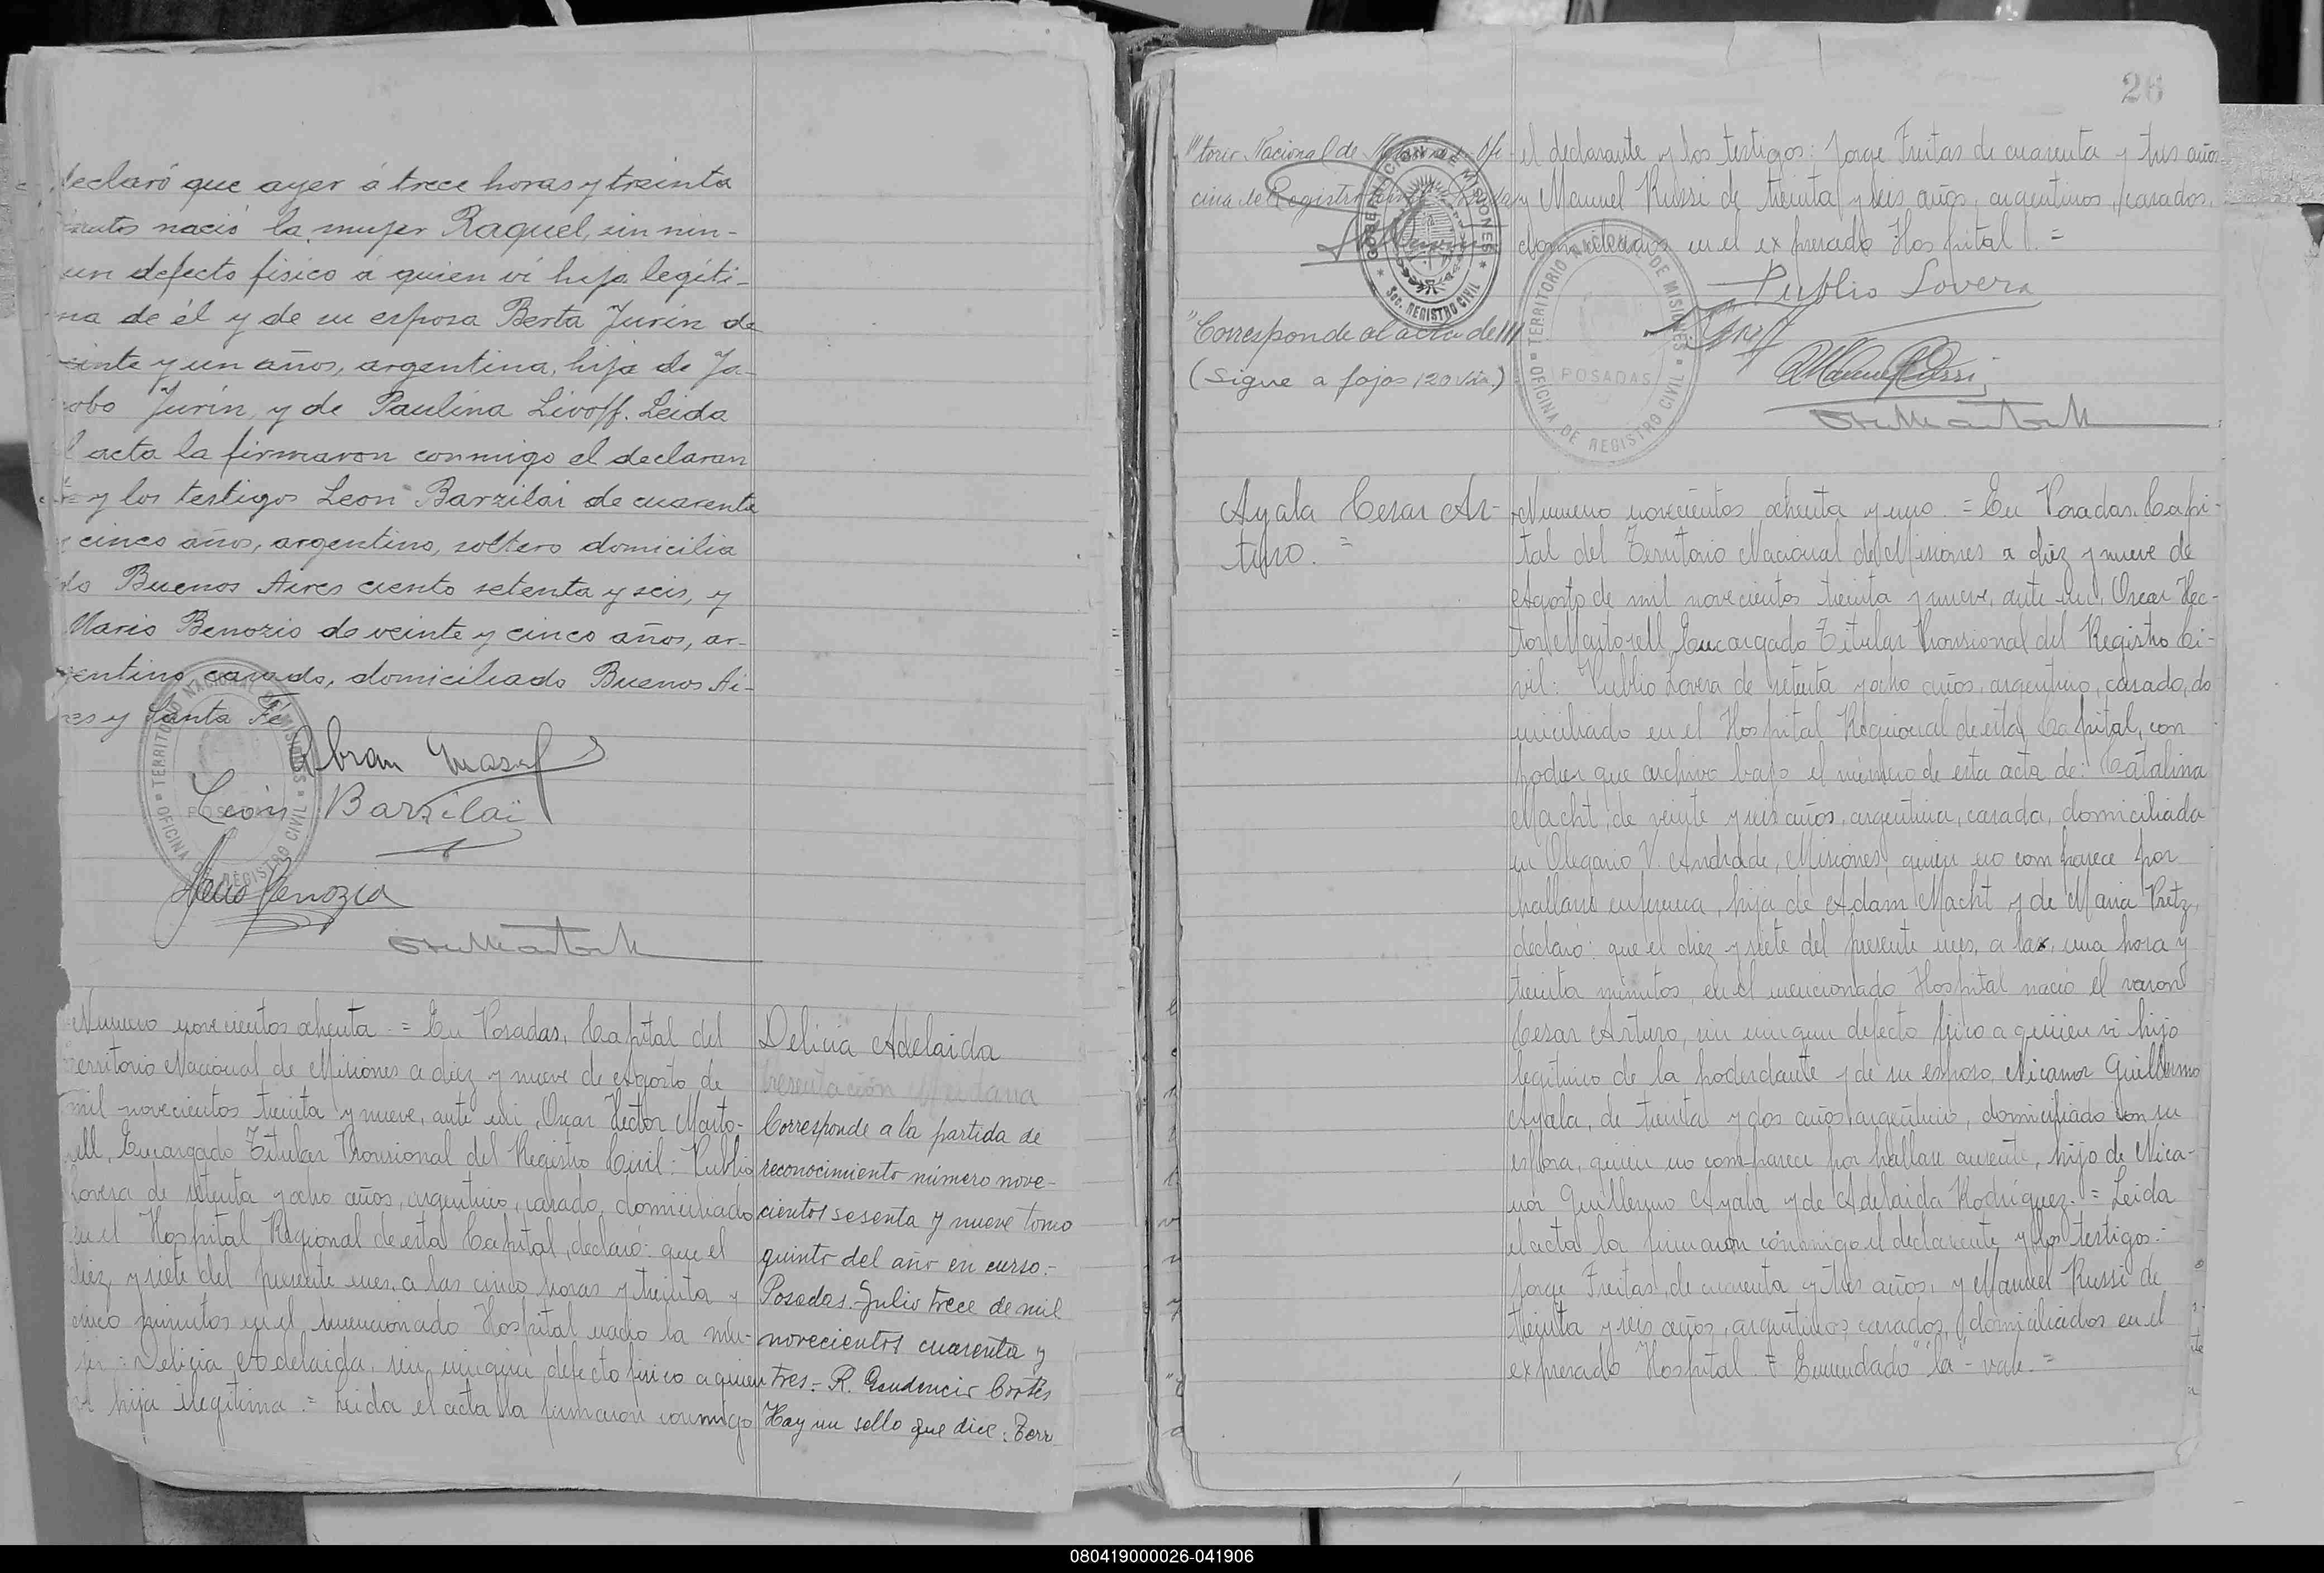 declaró que ayer á trece horas y treinta
nutos nació la mujer Raquel, sin nin-
un defecto físico á quien ví hija legíti-
ma de él y de su esposa Berta Jurin de
einte y un años, argentina, hija de Ja-
cobo Jurin, y de Paulina Livoff. Leida
l acta la firmaron conmigo el declaran
te y los testigos Leon Barzilai de cuarenta
y cinco años, argentino, soltero domicilia
do Buenos Aires ciento setenta y seis, y
Mario Benozio de veinte y cinco años, ar-
gentino casado, domiciliado Buenos Ai-
res y Santa Fé
TERRITORIO NACIONAL DE MISIONES
POSADAS
OFICINA DE REGISTRO CIVIL
León Barzilai
Numero novecientos ochenta = En Posadas, Capital del
Territorio Nacional de Misiones a diez y nueve de Agosto de
mil novecientos treinta y nueve, ante mi, Oscar Hector Marto-
rell, Encargado Titular Provisional del Registro Civil: Publio
Lovera de setenta y ocho años, argentino, casado, domiciliado
en el Hospital Regional de esta Capital, declaró: que el
diez y siete del presente mes, a las cinco horas y treinta y
cinco minutos en el mencionado Hospital nació la mu-
jer: Delicia Adelaida, sin ningun defecto fisico a quien
vi hija ilegitima. = Leida el acta la firmaron conmigo
Delicia Adelaida
Corresponde a la partida de
reconocimiento número nove-
cientos sesenta y nueve tomo
quinto del año en curso.-
Posadas. Julio trece de mil
novecientos cuarenta y
tres.- R. Gaudencio Cortés
Hay un sello que dice: Terr
26
"torio Nacional de Misiones. Ofi-
cina de Registro
GOBERNACION DE MISIONES
SEC. REGISTRO CIVIL
"Corresponde al acta de ///
(Sigue a fojas 120 vta.)
el declarante y los testigos: Jorge Freitas de cuarenta y tres años
y Manuel Russi de treinta y seis años, argentinos, casados,
domiciliados en el expresado Hospital. =
Publio Lovera
TERRITORIO NACIONAL DE MISIONES
POSADAS
OFICINA DE REGISTRO CIVIL
Ayala Cesar Ar-
turo. =
Numero novecientos ochenta y uno. = En Posadas, Capi-
tal del Territorio Nacional de Misiones a diez y nueve de
Agosto de mil novecientos treinta y nueve, ante mi, Oscar Hec-
tor Martorell Encargado Titular Provisional del Registro Ci-
vil: Publio Lovera de setenta y ocho años, argentino, casado, do
miciliado en el Hospital Regional de esta Capital, con
poder que archivo bajo el número de esta acta de: Catalina
Macht, de veinte y seis años, argentina, casada, domiciliada
en Olegario V. Andrade, Misiones, quien no comparece por
hallarse enferma, hija de Adam Macht y de Maria Pretz,
declaró: que el diez y siete del presente mes, a la, una hora y
treinta minutos, en el mencionado Hospital nació el varon
Cesar Arturo, sin ningun defecto fisico a quien vi hijo
legitimo de la poderdante y de su esposo, Nicanor Guillermo
Ayala, de treinta y dos años, argentino, domiciliado con su
esposa, quien no comparece por hallarse ausente, hijo de Nica-
nor Guillermo Ayala y de Adelaida Rodríguez. = Leida
el acta la firmaron conmigo el declarante y los testigos:
Jorge Freitas, de cuarenta y tres años, y Manuel Russi de
treinta y seis años, argentinos, casados, domiciliados en el
expresado Hospital. = Enmendado "la" - vale. =
080419000026-041906